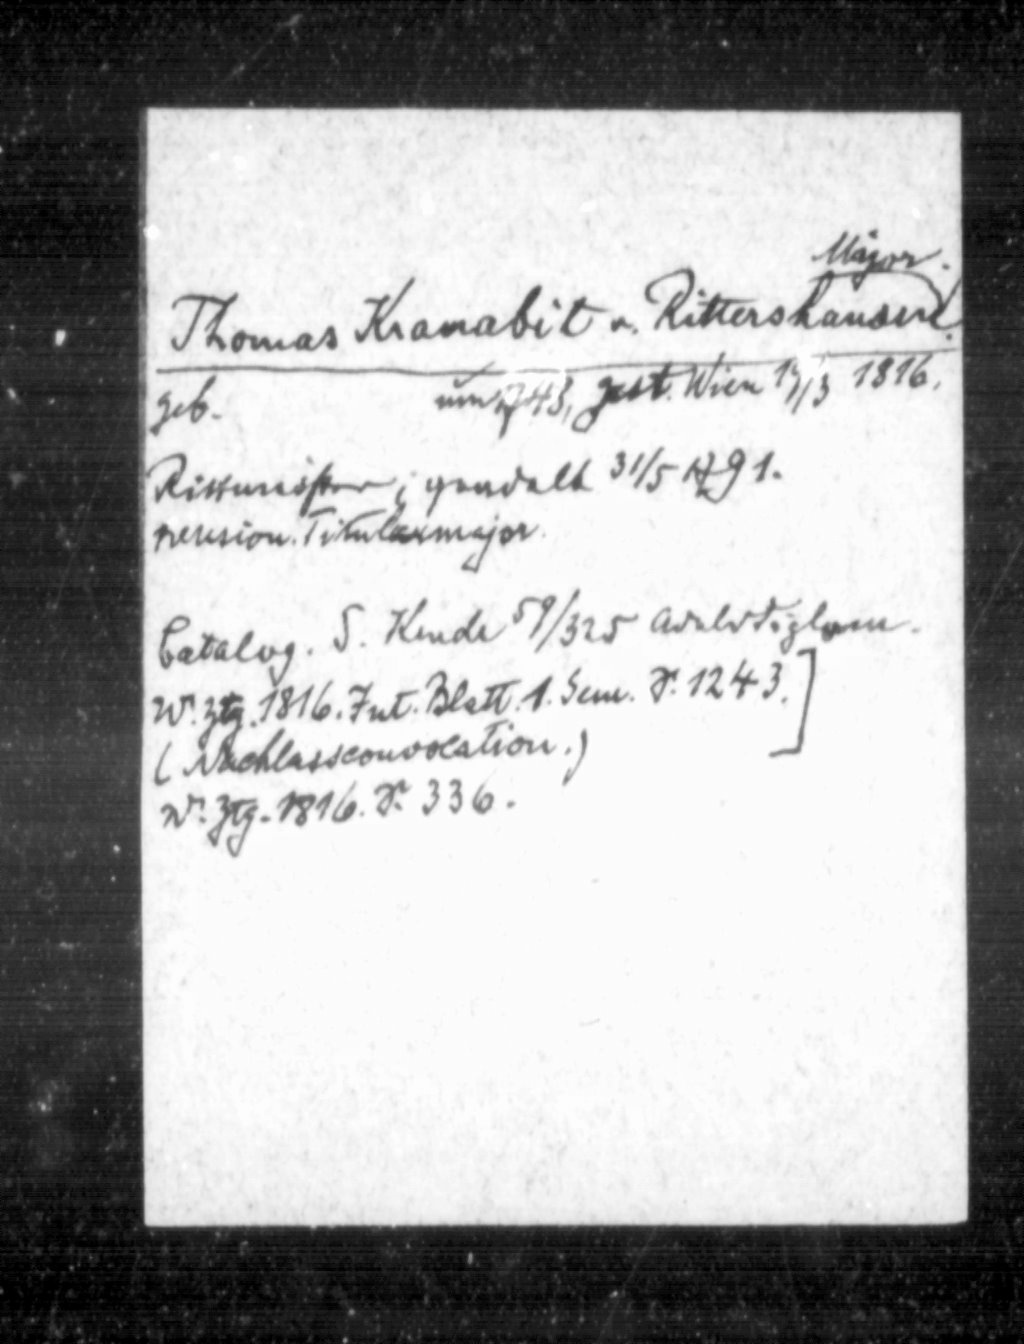 Major.
Thomas Kramabit v. Rittershausen.
geb. um 1743, gest. Wien 17/3 1816.
Rittmeister; geadelt 31/5 1791.
pension. Titularmajor.
Catalog. S. Kende 59/325 Adelsdiplom.
W. Ztg. 1816. Int. Blatt 1. Sem. S. 1243.]
(Nachlassconvocation.)
W. Ztg. 1816. S. 336.